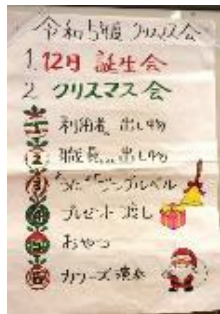 令和5年度 クリスマス会
1. 12月 誕生会
2. クリスマス会
1 利用者 出し物
2 職員 出し物
3 うた♪ジングルベル
4 プレゼント渡し
5 おやつ
6 演奏